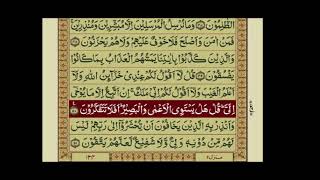 الظّٰلِمُوْنَ وَمَا نُرْسِلُ الْمُرْسَلِيْنَ اِلَّا مُبَشِّرِيْنَ وَمُنْذِرِيْنَ
فَمَنْ اٰمَنَ وَاَصْلَحَ فَلَا خَوْفٌ عَلَيْهِمْ وَلَا هُمْ يَحْزَنُوْنَ
وَالَّذِيْنَ كَذَّبُوْا بِاٰيٰتِنَا يَمَسُّهُمُ الْعَذَابُ بِمَا كَانُوْا
يَفْسُقُوْنَ قُلْ لَّاۤ اَقُوْلُ لَكُمْ عِنْدِيْ خَزَآىِٕنُ اللّٰهِ وَلَاۤ
اَعْلَمُ الْغَيْبَ وَلَاۤ اَقُوْلُ لَكُمْ اِنِّيْ مَلَكٌ اِنْ اَتَّبِعُ اِلَّا مَا يُوْحٰۤى
اِلَيَّ قُلْ هَلْ يَسْتَوِى الْاَعْمٰى وَالْبَصِيْرُ اَفَلَا تَتَفَكَّرُوْنَ
وَاَنْذِرْ بِهِ الَّذِيْنَ يَخَافُوْنَ اَنْ يُّحْشَرُوْۤا اِلٰى رَبِّهِمْ لَيْسَ
لَهُمْ مِّنْ دُوْنِهٖ وَلِيٌّ وَّلَا شَفِيْعٌ لَّعَلَّهُمْ يَتَّقُوْنَ